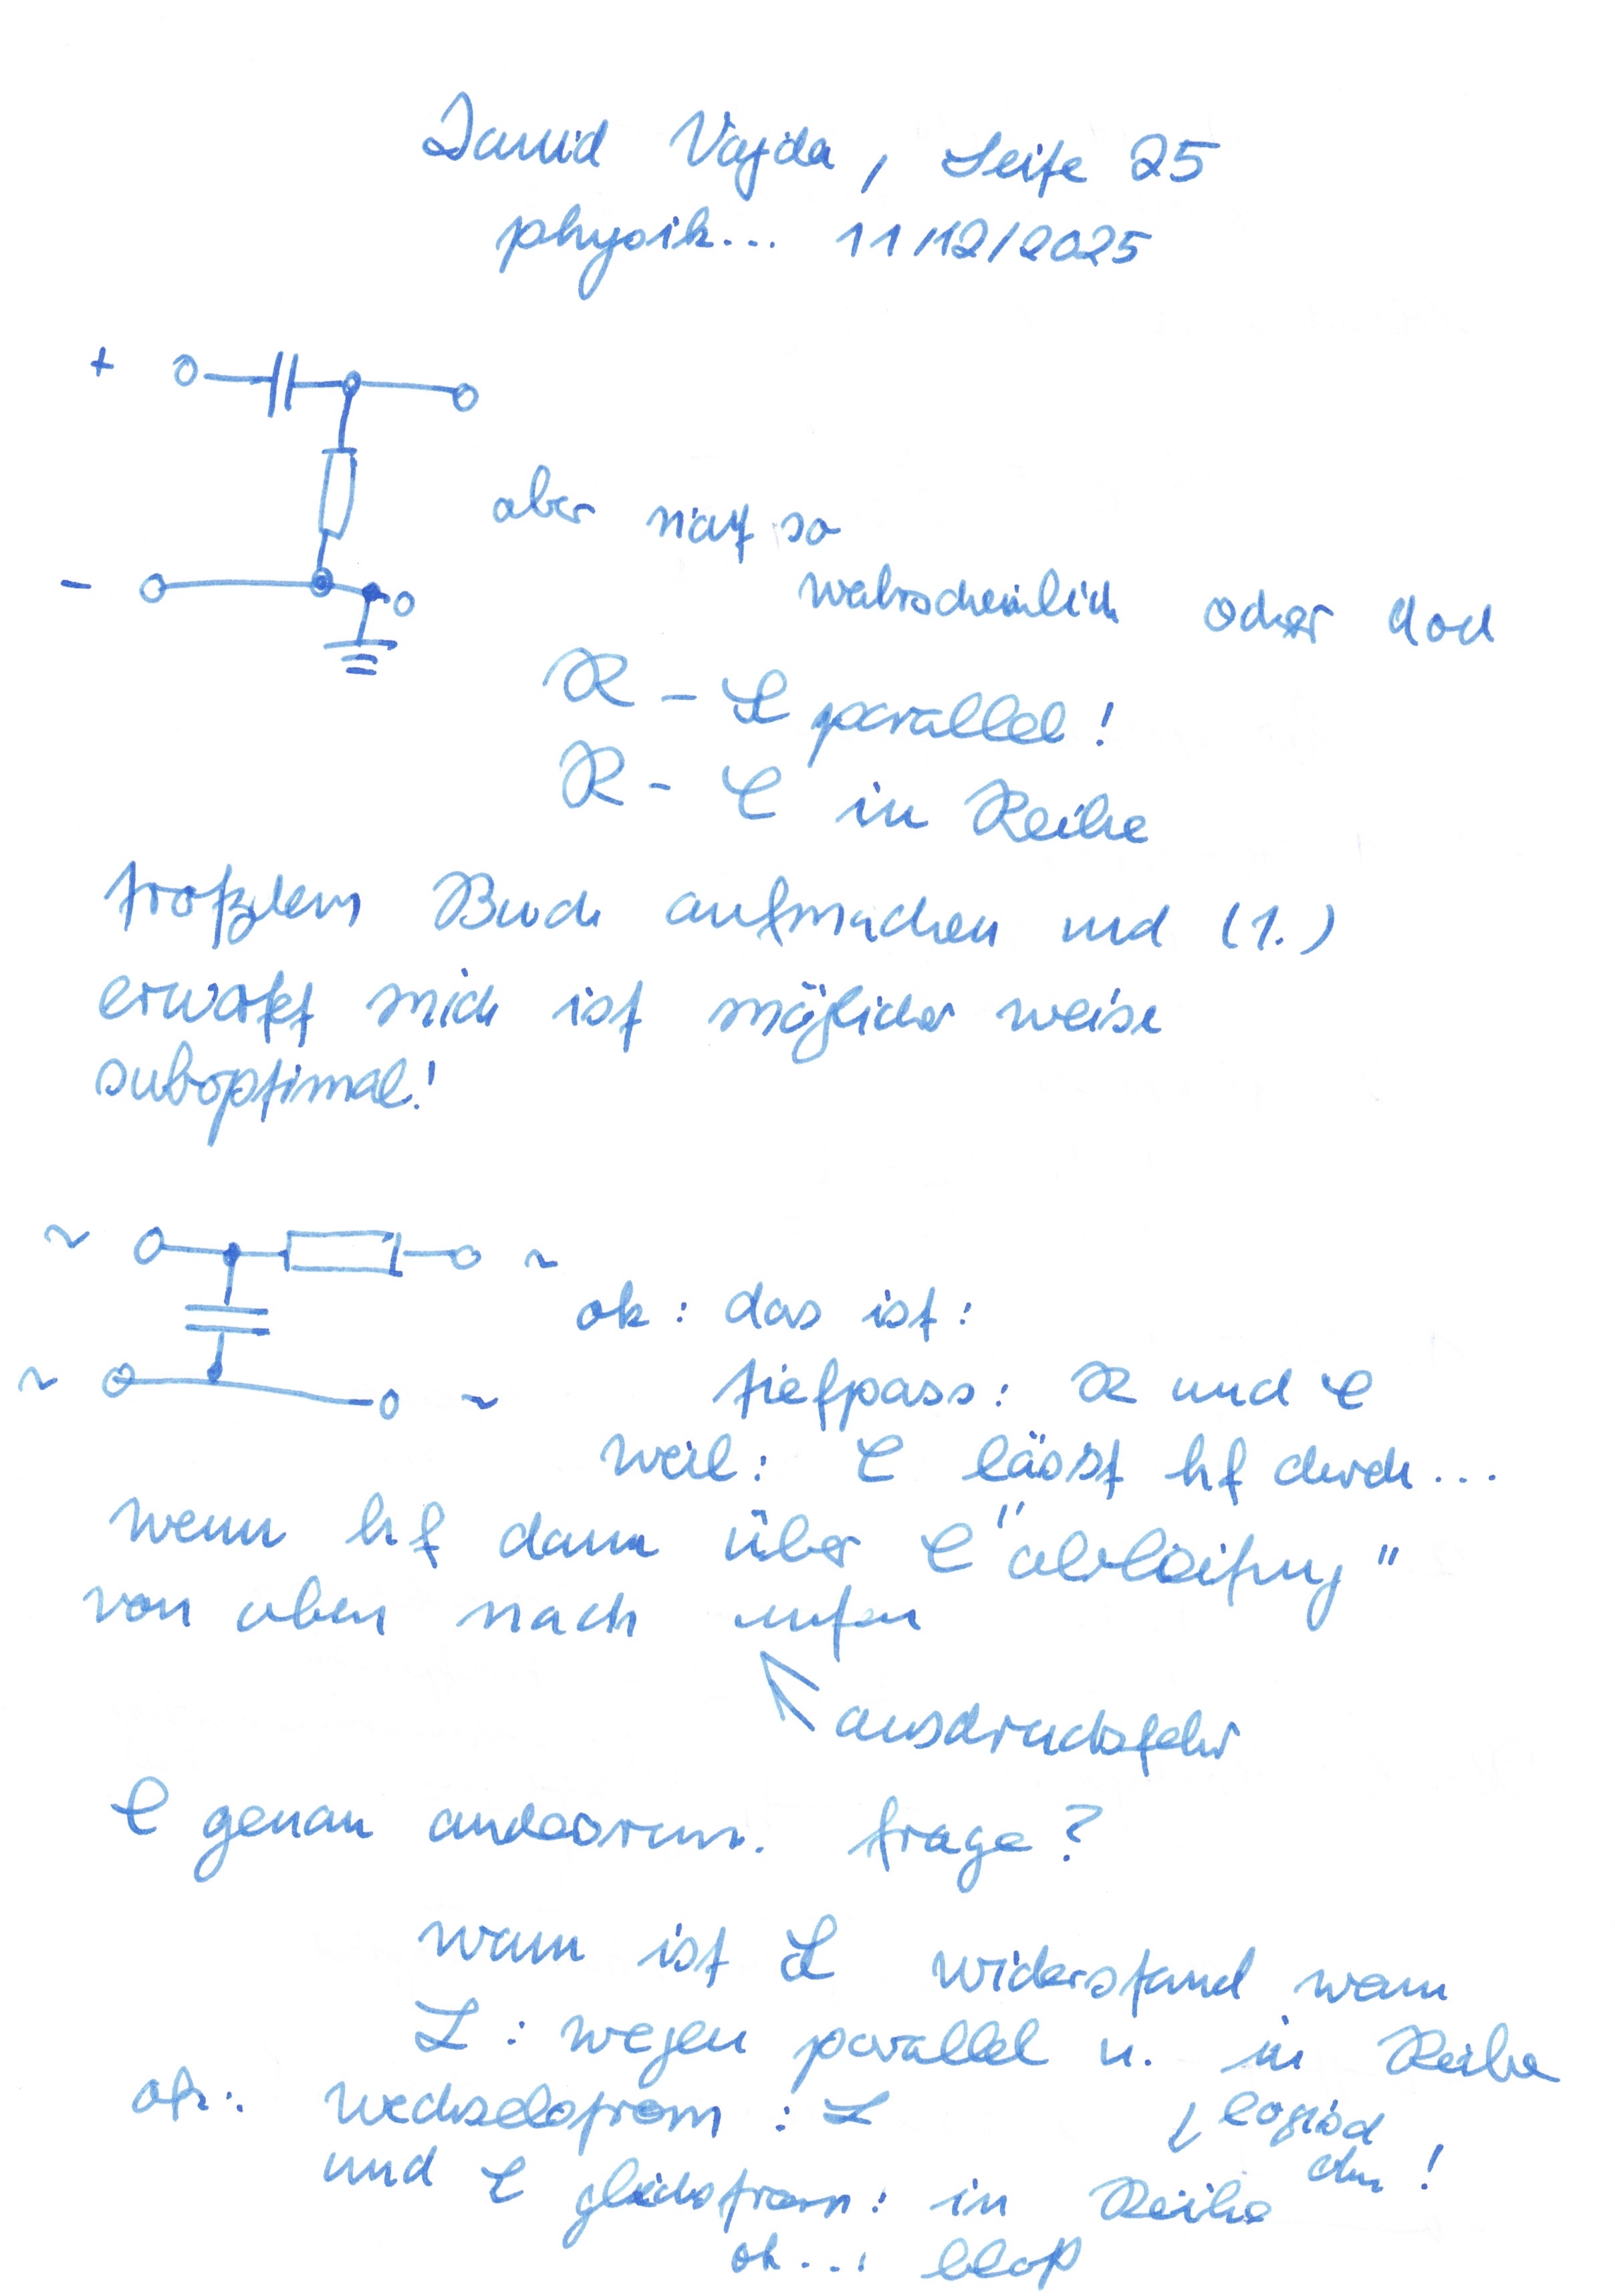 David Vajda, Seite 25
physik... 11/12/2025
+
aber nur so
-
wahrscheinlich oder doch
R - L parallel!
R - C in Reihe
trotzdem Buch aufmachen und (1.)
erwartet mich ist möglicher weise
suboptimal!
~ ~
ok: das ist:
~ ~ tiefpass: R und C
weil: C lässt hf durch...
wenn hf dann über C "ableitung"
von oben nach unten
ausdrucksfehr
C genau andersrum. frage?
wann ist L widerstand wann
L: wegen parallel u. in Reihe
ok: wechselstrom: L logisch
und C gleichstrom: in Reihe !
ok...: